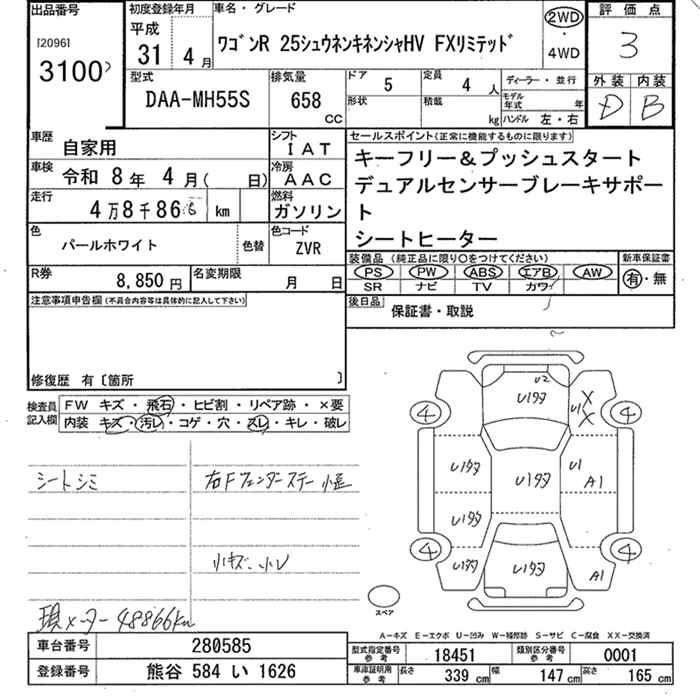 出品番号
[2096]
3100
初度登録年月
平成
31 4 月
車名・グレード
ワゴンR 25シュウネンキネンシャHV FXリミテッド
2WD
・
4WD
評価点
3
外装 内装
D B
型式
DAA-MH55S
排気量
658
cc
ドア
5
定員
4 人
形状
積載
kg
ディーラー・並行
モデル
年式
年
ハンドル 左・右
車歴
自家用
シフト
IAT
車検
令和 8 年 4 月( 日)
冷房
AAC
走行
4万8千86 km
燃料
ガソリン
色
パールホワイト
色替
色コード
ZVR
R券
8,850 円
名変期限
月 日
セールスポイント(正常に機能するものに限ります)
キーフリー&プッシュスタート
デュアルセンサーブレーキサポー
ト
シートヒーター
装備品 (純正品に限り○をつけてください)
PS PW ABS エアB AW
SR ナビ TV カワ
新車保証書
有・無
後日品
保証書・取説
注意事項申告欄 (不具合内容等は具体的に記入して下さい)
修復歴 有 〔箇所 〕
検査員
記入欄
FW キズ・飛石・ヒビ割・リペア跡・×要
内装 キズ・汚レ・コゲ・穴・スレ・キレ・破レ
シートシミ
右Fフェンダーステー小歪
小キズ、小凹
現メーター 48866km
U2
U1タタ
U1
X
X
4
4
U1タタ
U1タタ
U1
A1
U1タタ
4
4
U1タタ
U1タタ
A1
スペア
A-キズ E-エクボ U-凹み W-補修跡 S-サビ C-腐食 XX-交換済
車台番号
280585
登録番号
熊谷 584 い 1626
型式指定番号
参考
18451
類別区分番号
参考
0001
車庫証明用
参考
長さ
339 cm
幅
147 cm
高さ
165 cm